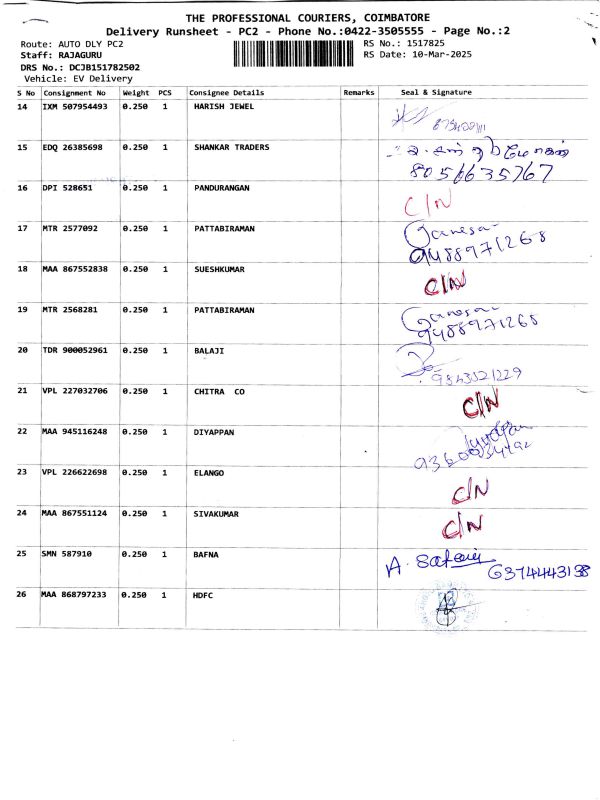 THE PROFESSIONAL COURIERS, COIMBATORE
Delivery Runsheet - PC2 - Phone No.:0422-3505555 - Page No.:2
Route: AUTO DLY PC2 RS No.: 1517825
Staff: RAJAGURU RS Date: 10-Mar-2025
DRS No.: DCJB151782502
Vehicle: EV Delivery
S No Consignment No Weight PCS Consignee Details Remarks Seal & Signature
14 IXM 507954493 0.250 1 HARISH JEWEL
15 EDQ 26385698 0.250 1 SHANKAR TRADERS
8056635767
16 DPI 528651 0.250 1 PANDURANGAN C/N
17 MTR 2577092 0.250 1 PATTABIRAMAN Ganesan
9488971268
18 MAA 867552838 0.250 1 SUESHKUMAR C/N
19 MTR 2568281 0.250 1 PATTABIRAMAN Ganesan
9488971268
20 TDR 900052961 0.250 1 BALAJI
9843521229
21 VPL 227032706 0.250 1 CHITRA CO C/N
22 MAA 945116248 0.250 1 DIYAPPAN
23 VPL 226622698 0.250 1 ELANGO C/N
24 MAA 867551124 0.250 1 SIVAKUMAR C/N
25 SMN 587910 0.250 1 BAFNA A.
6374443138
26 MAA 868797233 0.250 1 HDFC